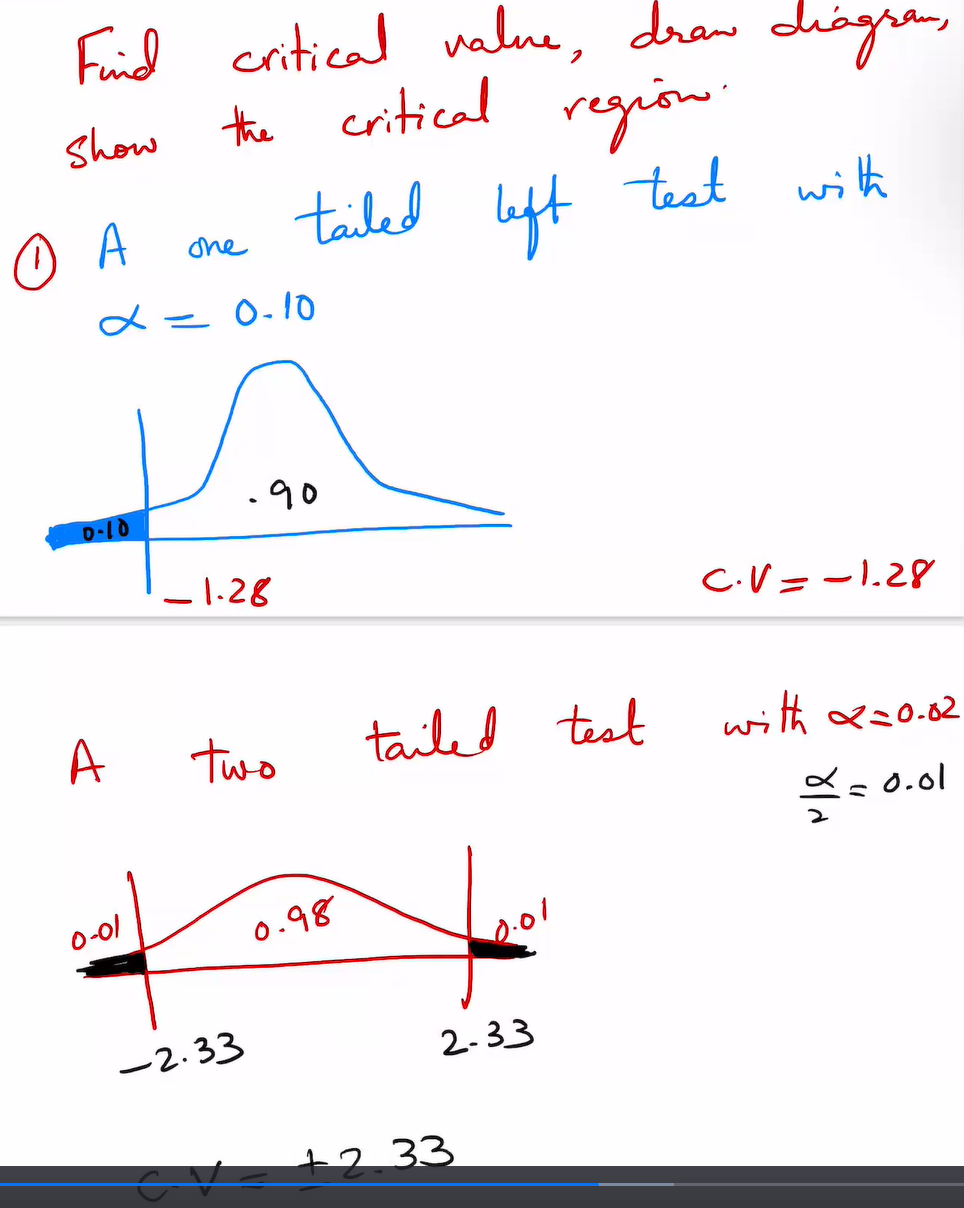 Find critical value, draw diagram,
show the critical region.
① A one tailed left test with
α = 0.10
.90
0.10
-1.28
C.V = -1.28
A two tailed test with α=0.02
α/2 = 0.01
0.01 0.98 0.01
-2.33 2.33
C.V = ±2.33